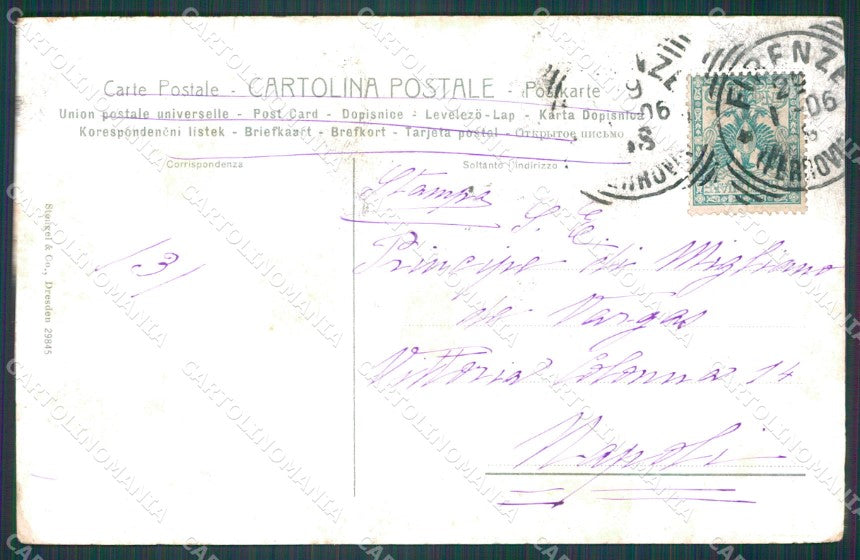 Carte Postale - CARTOLINA POSTALE - Postkarte
Union postale universelle - Post Card - Dopisnice - Levelező-Lap - Karta Dopisnicа
Korespondenční lístek - Briefkaart - Brefkort - Tarjeta postol - Открытое письмо
Corrispondenza
Soltanto l'indirizzo
FIRENZE
29
1
06
8
(FERROVIA
Stengel & Co., Dresden 29845
(3)
Stampa
S. E.
Principe di Migliano
de Vargas
Vittoria Colonna 14
Napoli
CARTOLINOMANIA